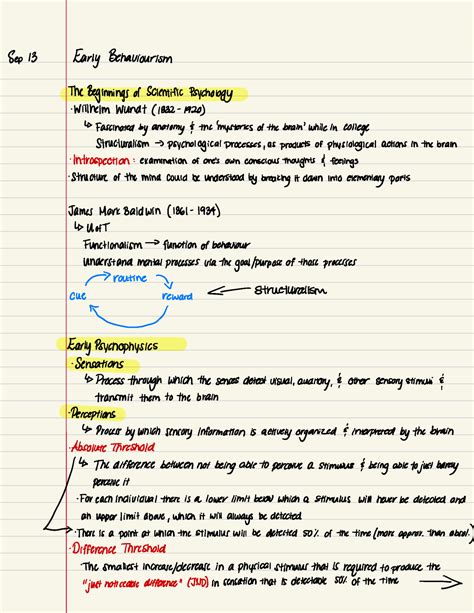 Sep 13 Early Behaviourism
The Beginnings of Scientific Psychology
· Wilhelm Wundt (1832 - 1920)
↳ Fascinated by anatomy & the 'mysteries of the brain' while in college
Structuralism → psychological processes, as products of physiological actions in the brain
· Introspection : examination of one's own conscious thoughts & feelings
· Structure of the mind could be understood by breaking it down into elementary parts
James Mark Baldwin (1861 - 1934)
↳ UofT
Functionalism → function of behaviour
understand mental processes via the goal/purpose of those processes
routine
cue reward ← Structuralism
Early Psychophysics
· Sensations
↳ Process through which the senses detect visual, auditory, & other sensory stimuli &
transmit them to the brain
· Perceptions
↳ Process by which sensory information is actively organized & interpreted by the brain
· Absolute Threshold
↳ The difference between not being able to perceive a stimulus & being able to just barely
perceive it
· For each individual there is a lower limit below which a stimulus will never be detected and
an upper limit above, which it will always be detected
· There is a point at which the stimulus will be detected 50% of the time (more approx. than absol.)
· Difference Threshold
The smallest increase/decrease in a physical stimulus that is required to produce the
"just noticeable difference" (JND) in sensation that is detectable 50% of the time →